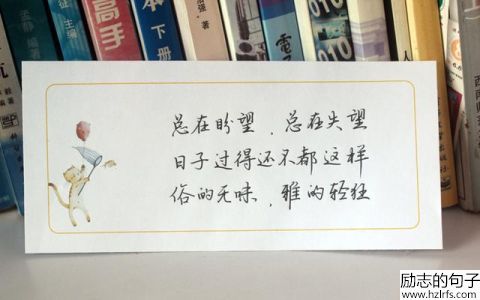 高手
本 下册
010
010
总在盼望，总在失望
日子过得还不都这样
俗的无味，雅的轻狂
励志的句子
www.hzlrfs.com